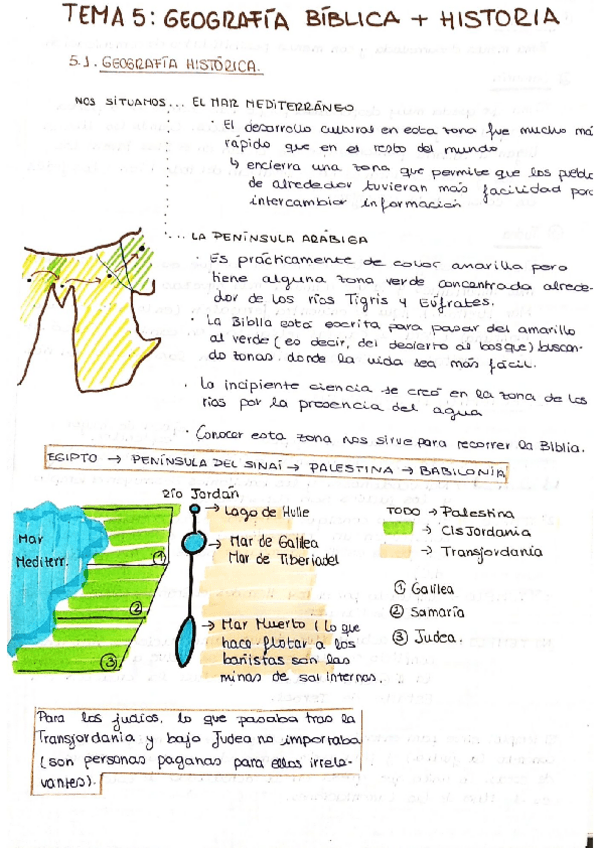 TEMA 5: GEOGRAFÍA BÍBLICA + HISTORIA
5.1. GEOGRAFÍA HISTÓRICA.
NOS SITUAMOS... EL MAR MEDITERRÁNEO
· El desarrollo cultural en esta zona fue mucho má
rápido que en el resto del mundo
↳ encierra una zona que permite que los puebl
de alrededor tuvieran más facilidad par
intercambiar información
... LA PENÍNSULA ARÁBIGA
· Es prácticamente de color amarilla pero
tiene alguna zona verde concentrada alrede-
dor de los ríos Tigris y Eúfrates.
· La Biblia está escrita para pasar del amarillo
al verde (es decir, del desierto al bosque) buscan-
do zonas donde la vida sea más fácil.
· La incipiente ciencia se creó en la zona de los
ríos por la presencia del agua
· Conocer esta zona nos sirve para recorrer la Biblia.
EGIPTO → PENÍNSULA DEL SINAÍ → PALESTINA → BABILONIA
Río Jordán
→ Lago de Hulle
Mar
Mediterr.
→ Mar de Galilea
Mar de Tiberiades
→ Mar Muerto (lo que
hace flotar a los
bañistas son las
minas de sal internas.
①
②
③
TODO → Palestina
→ CisJordania
→ Transjordania
① Galilea
② Samaría
③ Judea.
Para los judíos, lo que pasaba tras la
Transjordania y bajo Judea no importaba
(son personas paganas para ellos irrele-
vantes).